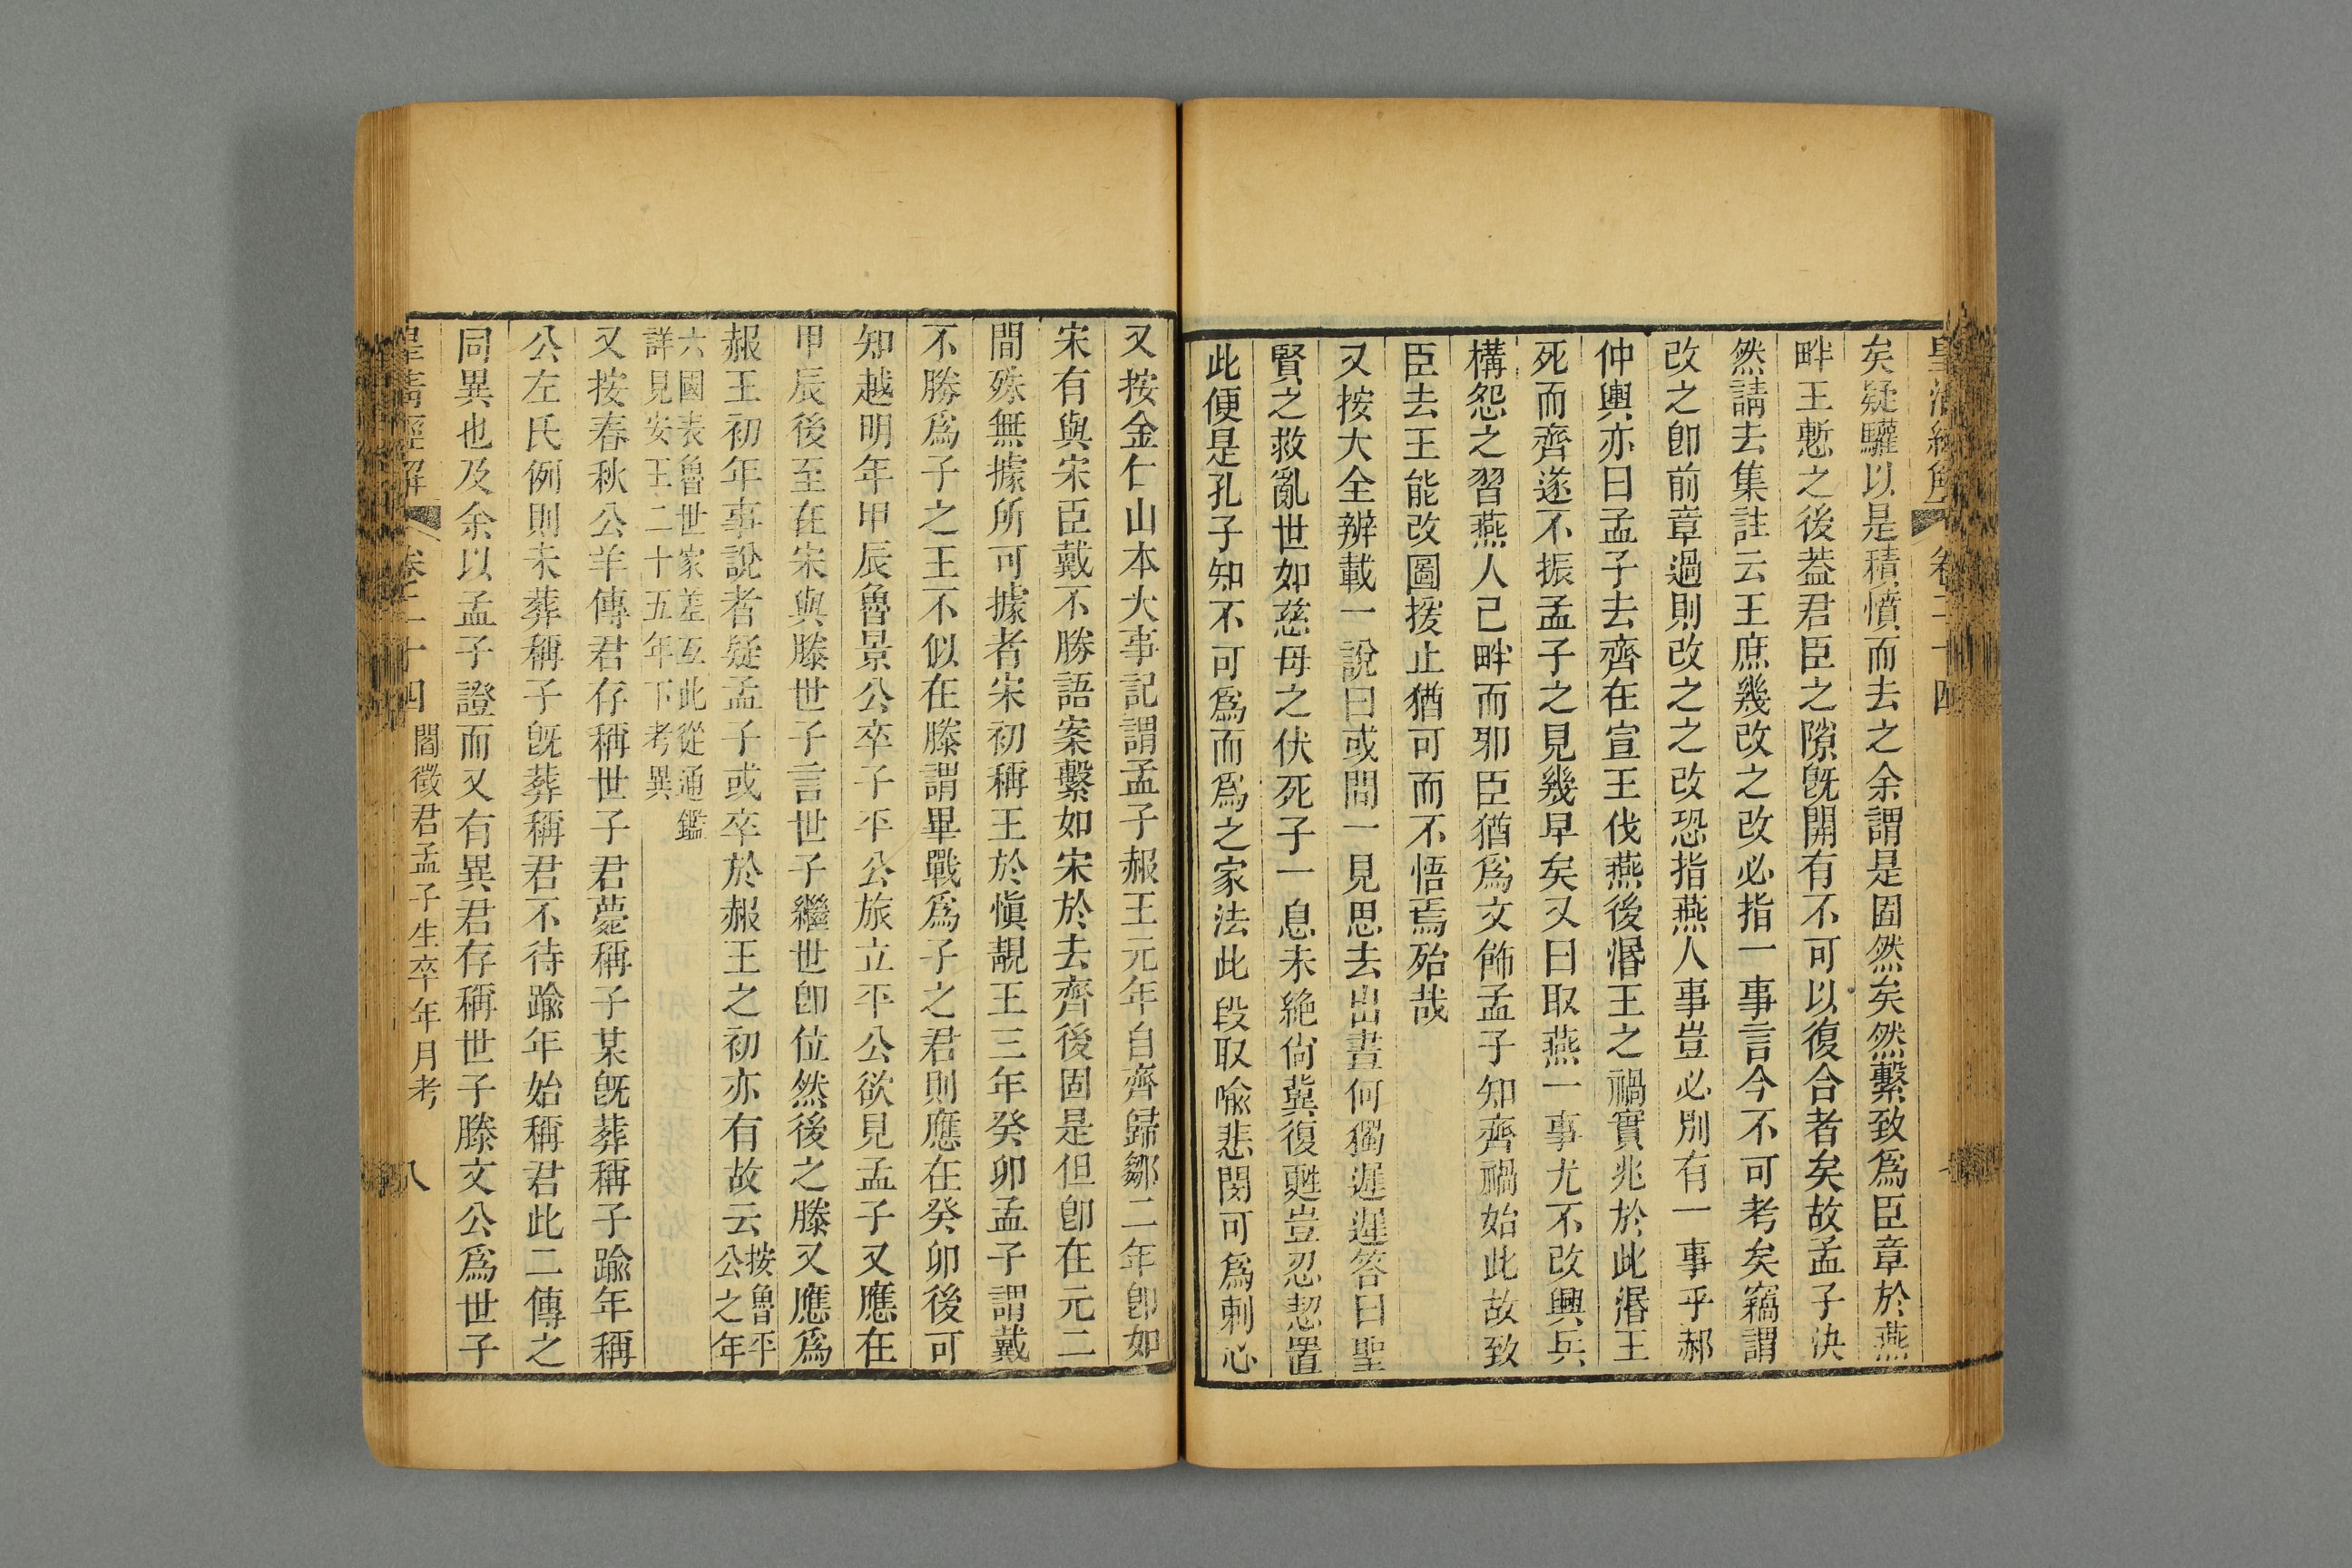 皇清經解 卷二十四
矣疑驩以是積憤而去之余謂是固然矣然繫致爲臣章於燕
畔王慙之後葢君臣之隙旣開有不可以復合者矣故孟子決
然請去集註云王庶幾改之改必指一事言今不可考矣竊謂
改之卽前章過則改之之改恐指燕人事豈必別有一事乎郝
仲輿亦曰孟子去齊在宣王伐燕後湣王之禍實兆於此湣王
死而齊遂不振孟子之見幾早矣又曰取燕一事尤不改興兵
構怨之習燕人已畔而邪臣猶爲文飾孟子知齊禍始此故致
臣去王能改圖援止猶可而不悟焉殆哉
又按大全辨載一說曰或問一見思去出晝何獨遲遲答曰聖
賢之救亂世如慈母之伏死子一息未絶尙冀復甦豈忍恝置
此便是孔子知不可爲而爲之家法此段取喩悲閔可爲刺心
又按金仁山本大事記謂孟子赧王元年自齊歸鄒二年卽如
宋有與宋臣戴不勝語案繫如宋於去齊後固是但卽在元二
間殊無據所可據者宋初稱王於愼靚王三年癸卯孟子謂戴
不勝爲子之王不似在滕謂畢戰爲子之君則應在癸卯後可
知越明年甲辰魯景公卒子平公旅立平公欲見孟子又應在
甲辰後至在宋與滕世子言世子繼世卽位然後之滕又應爲
赧王初年事說者疑孟子或卒於赧王之初亦有故云按魯平公之年
六國表魯世家差互此從通鑑
詳見安王二十五年下考異
又按春秋公羊傳君存稱世子君薨稱子某旣葬稱子踰年稱
公左氏例則未葬稱子旣葬稱君不待踰年始稱君此二傳之
同異也及余以孟子證而又有異君存稱世子滕文公爲世子
皇清經解 卷二十四 閻徵君孟子生卒年月考 八